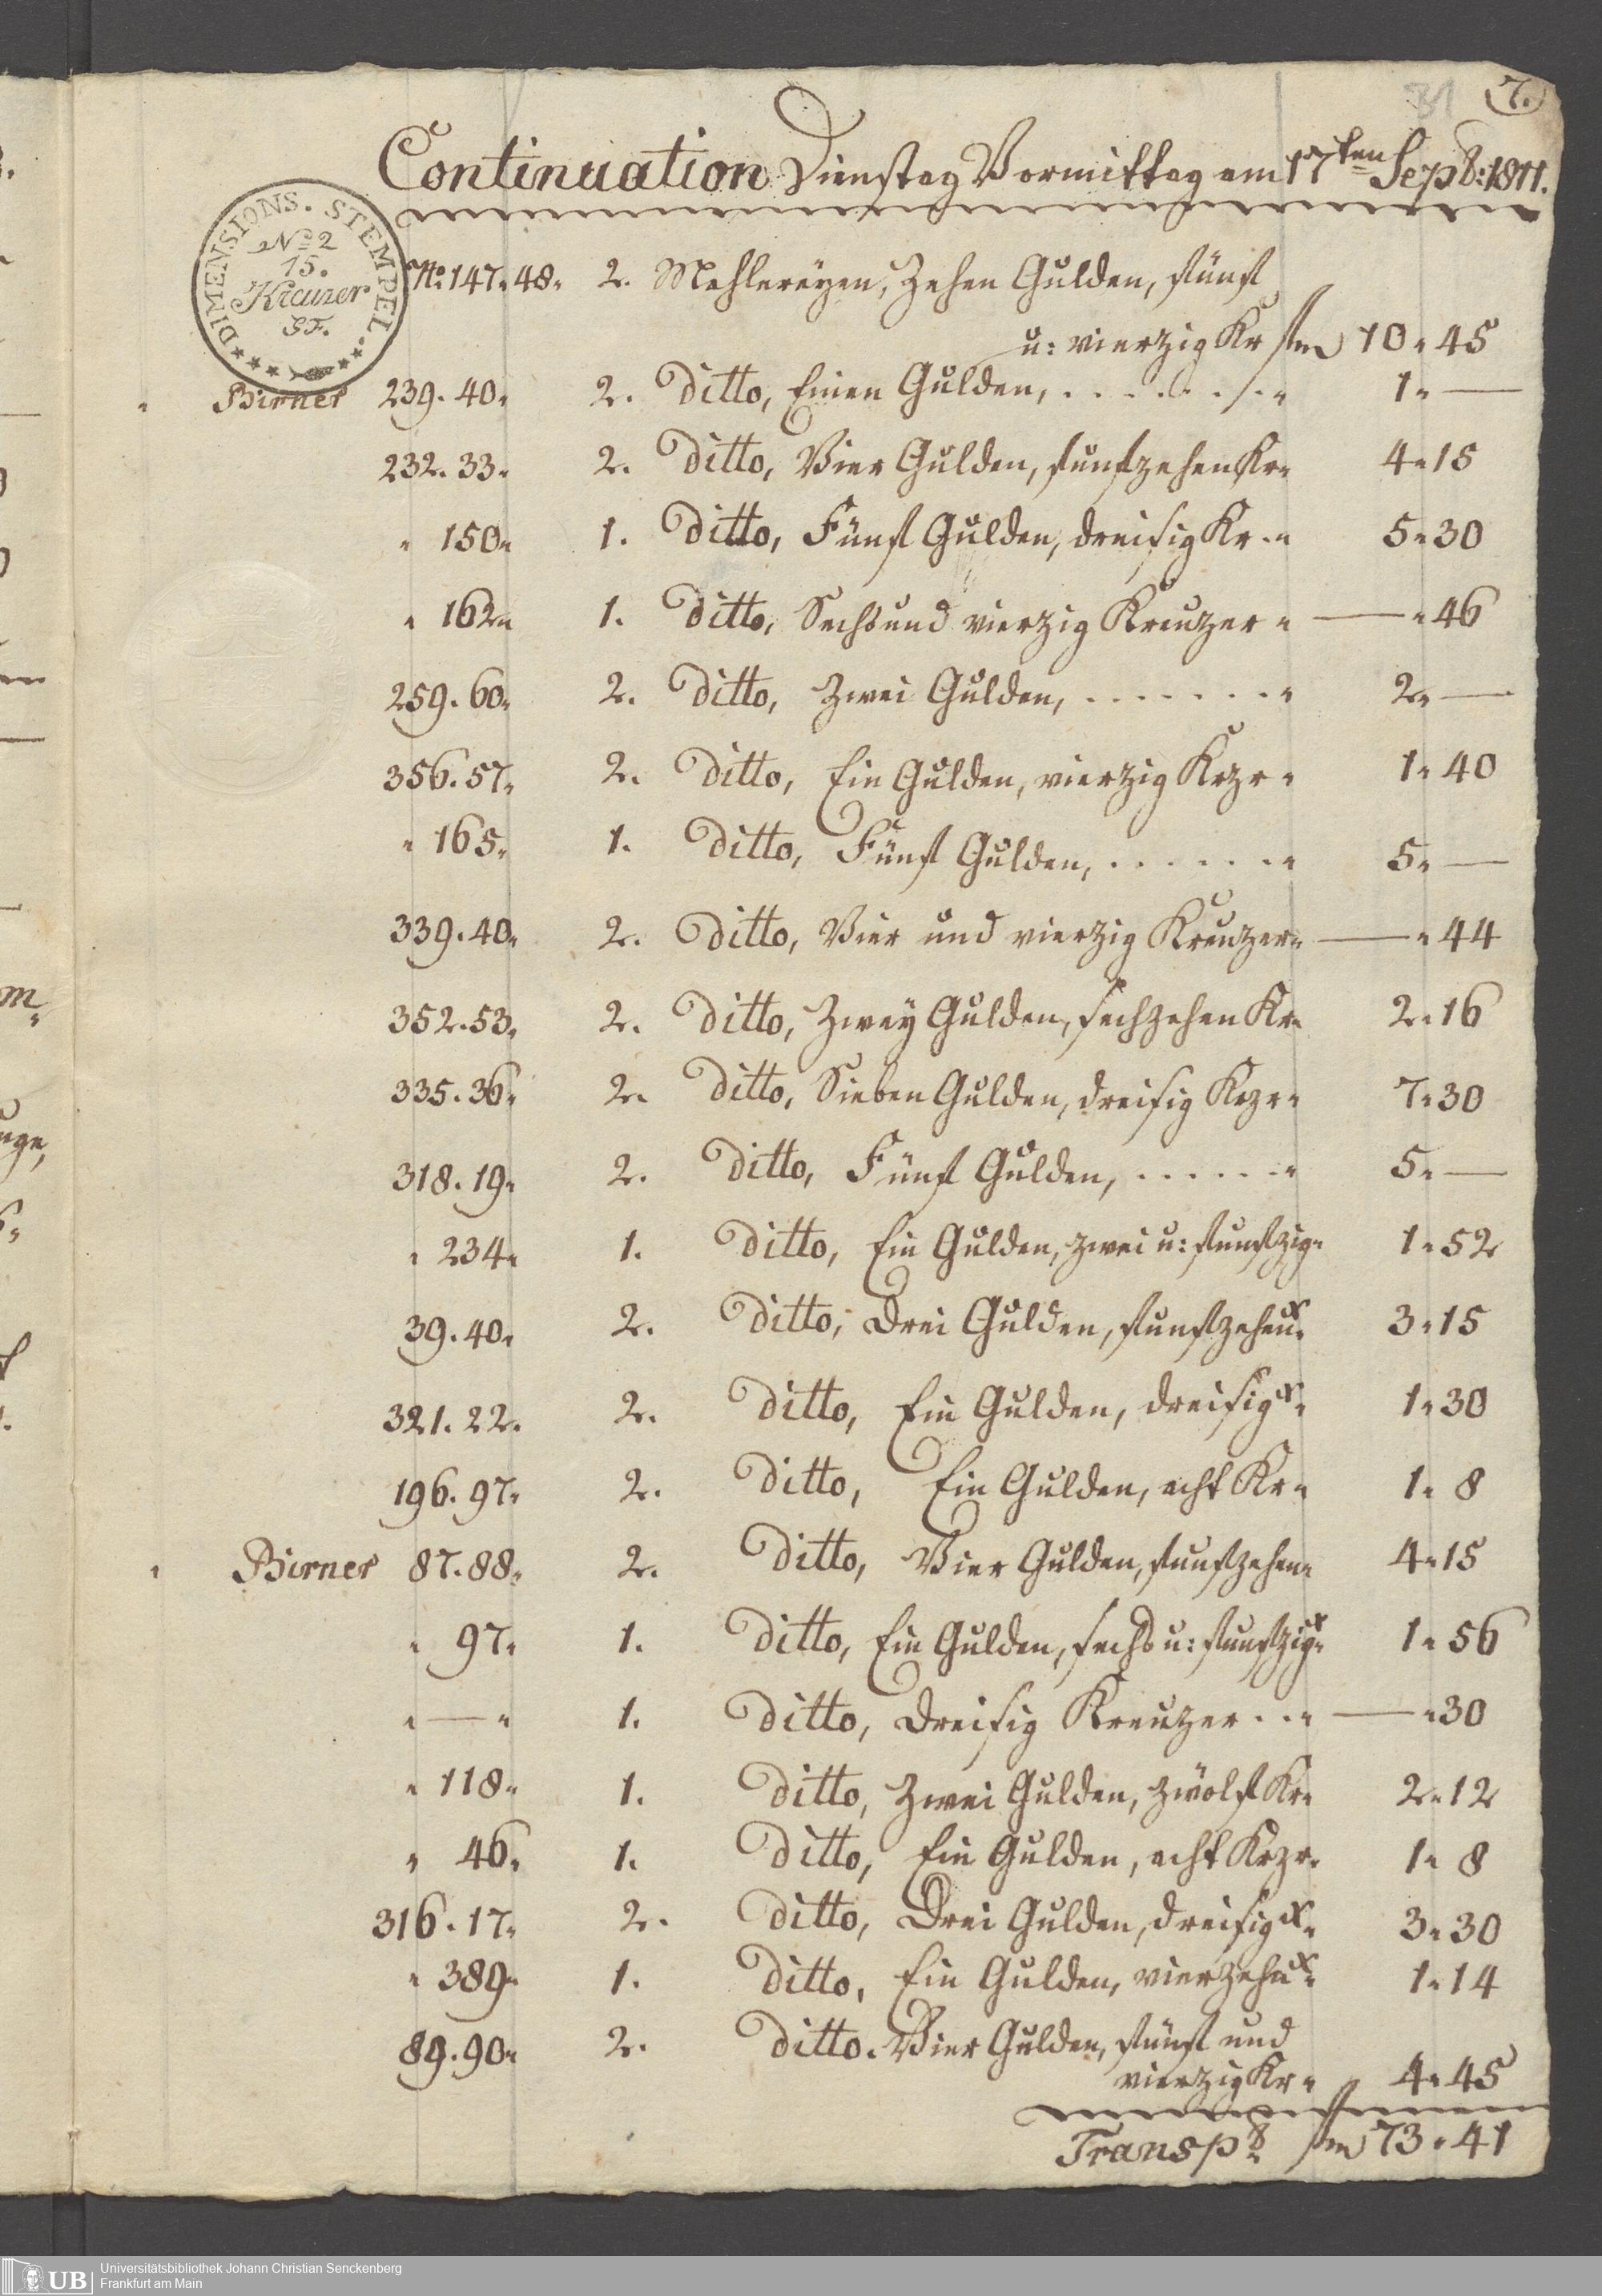 31 7.
Continuation Dienstag Vormittag am 17ten Sepb: 1811.
DIMENSIONS. STEMPEL.
No 2
15.
Kreuzer
G.F.
No: 147. 48. 2. Mahlereyen, Zehen Gulden, fünf
u: vierzig Kr fl 10 " 45
Birner 239. 40. 2. Ditto, Einen Gulden, . . . . . . . " 1 " —
232. 33. 2. Ditto, Vier Gulden, funfzehen Kr " 4 " 15
" 150 " 1. Ditto, Fünf Gulden, dreisig Kr . " 5 " 30
" 162 " 1. Ditto, Sechsund vierzig Kreuzer " — " 46
259. 60. 2. Ditto, Zwei Gulden, . . . . . . . " 2 " —
356. 57. 2. Ditto, Ein Gulden, vierzig Krzr " 1 " 40
" 165. 1. Ditto, Fünf Gulden, . . . . . . " 5 " —
339. 40. 2. Ditto, Vier und vierzig Kreuzer " — " 44
352. 53. 2. Ditto, Zwey Gulden, sechzehen Kr " 2 " 16
335. 36. 2. Ditto, Sieben Gulden, dreisig Krzr " 7 " 30
318. 19. 2. Ditto, Fünf Gulden, . . . . . . " 5 " —
" 234 " 1. Ditto, Ein Gulden, zwei u: funfzig " 1 " 52
39. 40. 2. Ditto, Drei Gulden, funfzehen x " 3 " 15
321. 22. 2. Ditto, Ein Gulden, dreisig x " 1 " 30
196. 97. 2. Ditto, Ein Gulden, acht Kr " 1 " 8
" Birner 87. 88. 2. Ditto, Vier Gulden, funfzehen " 4 " 15
" 97 " 1. Ditto, Ein Gulden, sechs u: funfzig x " 1 " 56
" — " 1. Ditto, Dreisig Kreuzer . . " — " 30
" 118 " 1. Ditto, Zwei Gulden, zwölf Kr " 2 " 12
" 46 " 1. Ditto, Ein Gulden, acht Krzr " 1 " 8
316. 17. 2. Ditto, Drei Gulden, dreisig x " 3 " 30
" 389 " 1. Ditto, Ein Gulden, vierzehn x " 1 " 14
89. 90. 2. Ditto. Vier Gulden, fünf und
vierzig Kr " 4 " 45
Transpt fl 73 " 41
UB Universitätsbibliothek Johann Christian Senckenberg
Frankfurt am Main